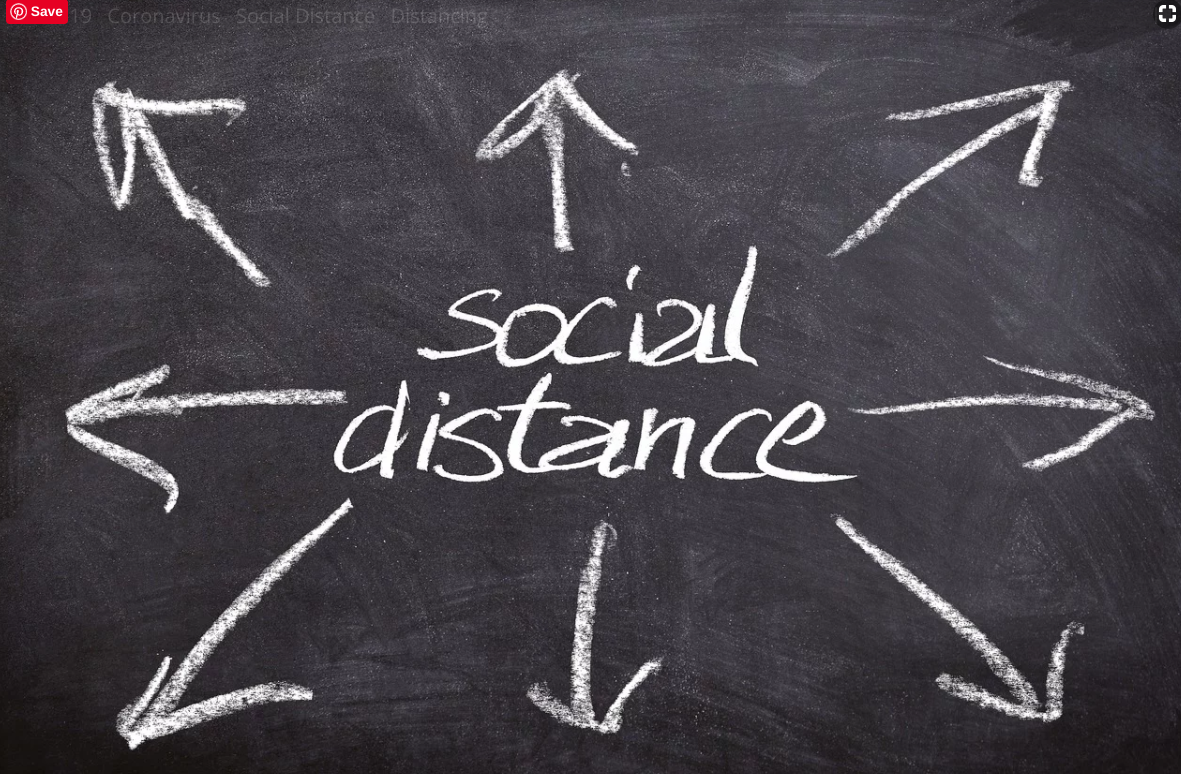 Save
19 Coronavirus Social Distance Distancing
social
distance